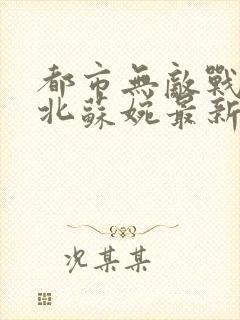 都市無敵戰
北蘇婉最新
况某某